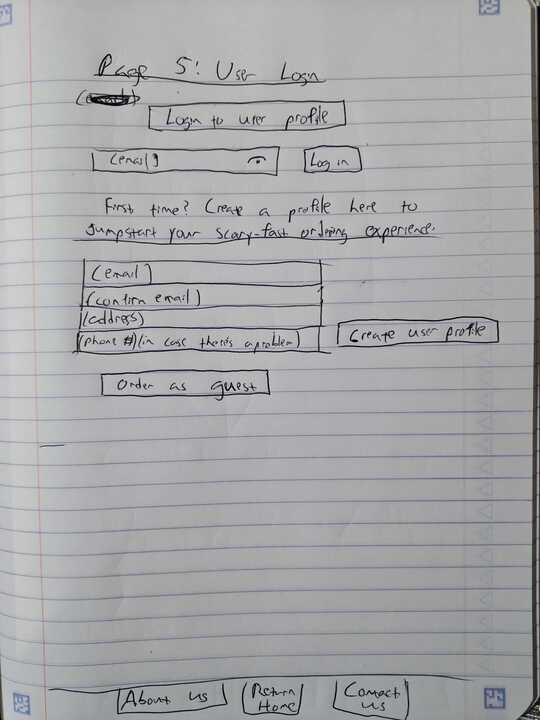 Page 5: User Login
Login to user profile
(email)
Log in
First time? Create a profile here to
Jumpstart your scary-fast ordering experience.
(email)
(confirm email)
(address)
(phone #) (in case there's a problem)
Create user profile
Order as guest
About us
Return
Home
Contact
us